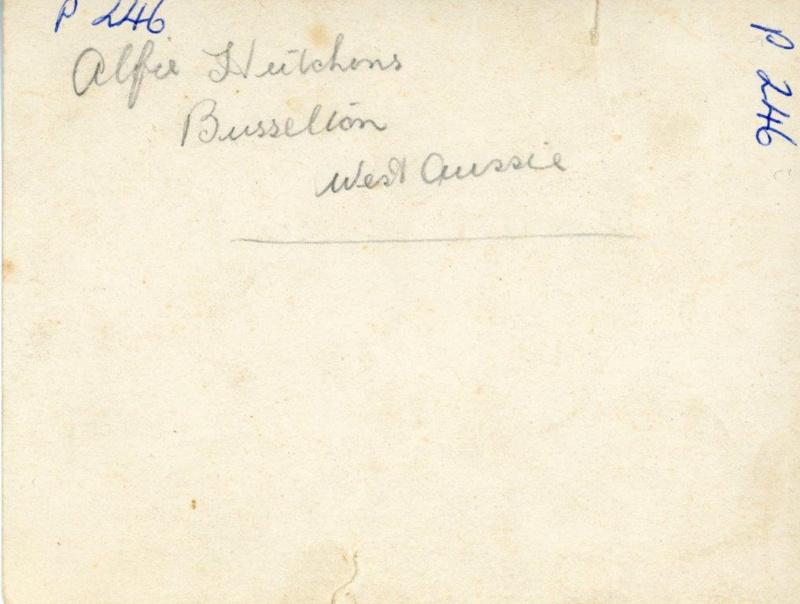 P 246
Alfie Hutchons
Busselton
West Aussie
P 246